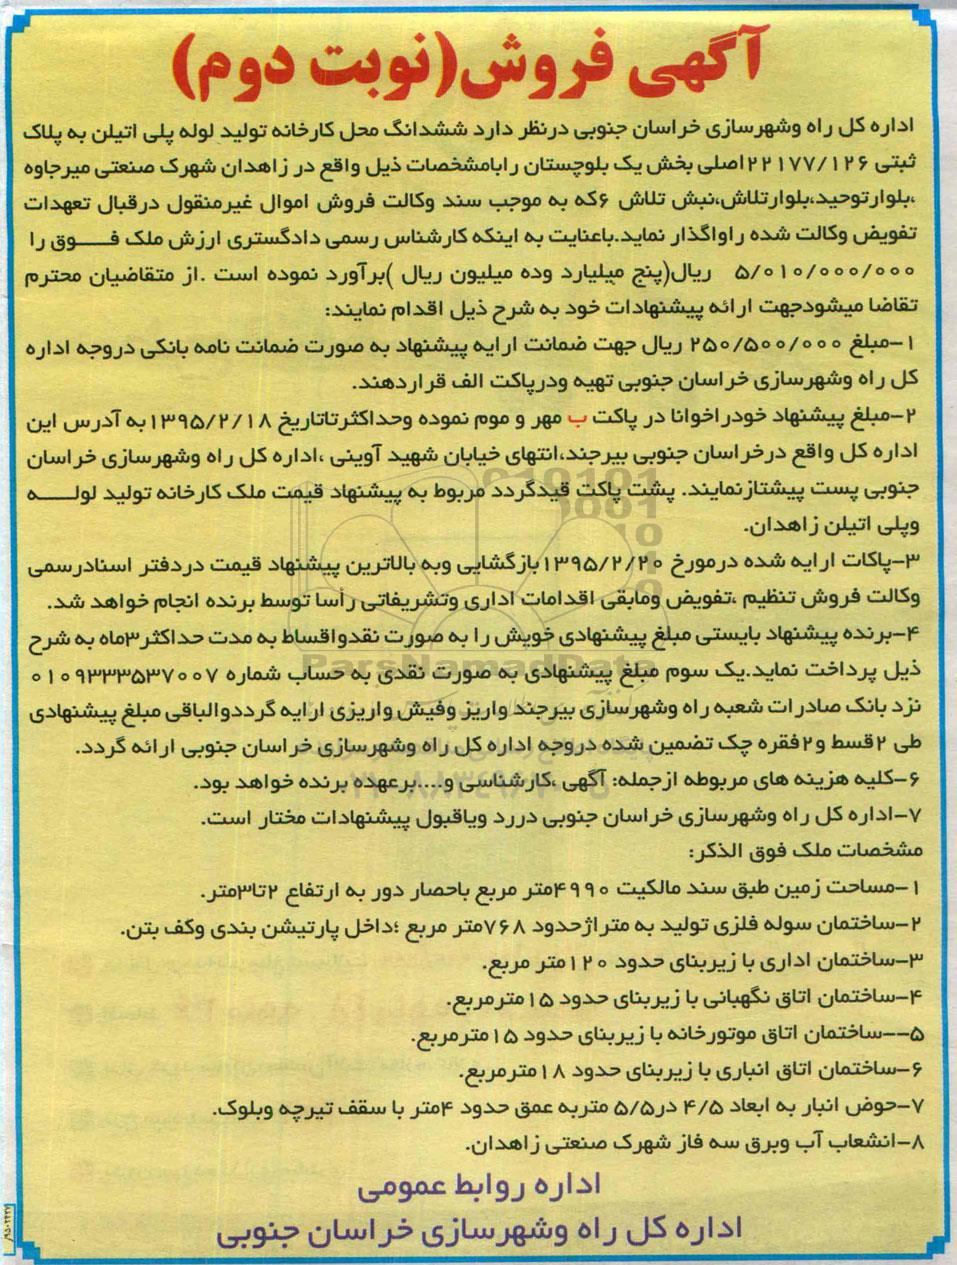 آگهی فروش(نوبت دوم)
اداره کل راه وشهرسازی خراسان جنوبی درنظر دارد ششدانگ محل کارخانه تولید لوله پلی اتیلن به پلاک
ثبتی ۲۲۱۷۷/۱۲۶اصلی بخش یک بلوچستان رابامشخصات ذیل واقع در زاهدان شهرک صنعتی میرجاوه
،بلوارتوحید،بلوارتلاش،نبش تلاش ۶که به موجب سند وکالت فروش اموال غیرمنقول درقبال تعهدات
تفویض وکالت شده راواگذار نماید.باعنایت به اینکه کارشناس رسمی دادگستری ارزش ملک فــــوق را
۵/۰۱۰/۰۰۰/۰۰۰ ریال(پنج میلیارد وده میلیون ریال )برآورد نموده است .از متقاضیان محترم
تقاضا میشودجهت ارائه پیشنهادات خود به شرح ذیل اقدام نمایند:
۱-مبلغ ۲۵۰/۵۰۰/۰۰۰ ریال جهت ضمانت ارایه پیشنهاد به صورت ضمانت نامه بانکی دروجه اداره
کل راه وشهرسازی خراسان جنوبی تهیه ودرپاکت الف قراردهند.
۲-مبلغ پیشنهاد خودراخوانا در پاکت ب مهر و موم نموده وحداکثرتاتاریخ ۱۳۹۵/۲/۱۸به آدرس این
اداره کل واقع درخراسان جنوبی بیرجند،انتهای خیابان شهید آوینی ،اداره کل راه وشهرسازی خراسان
جنوبی پست پیشتازنمایند. پشت پاکت قیدگردد مربوط به پیشنهاد قیمت ملک کارخانه تولید لولــــه
وپلی اتیلن زاهدان.
۳-پاکات ارایه شده درمورخ ۱۳۹۵/۲/۲۰بازگشایی وبه بالاترین پیشنهاد قیمت دردفتر اسنادرسمی
وکالت فروش تنظیم ،تفویض ومابقی اقدامات اداری وتشریفاتی رأسا توسط برنده انجام خواهد شد.
۴-برنده پیشنهاد بایستی مبلغ پیشنهادی خویش را به صورت نقدواقساط به مدت حداکثر۳ماه به شرح
ذیل پرداخت نماید.یک سوم مبلغ پیشنهادی به صورت نقدی به حساب شماره ۰۱۰۹۳۳۳۵۳۷۰۰۷
نزد بانک صادرات شعبه راه وشهرسازی بیرجند واریز وفیش واریزی ارایه گرددوالباقی مبلغ پیشنهادی
طی ۲قسط و۲فقره چک تضمین شده دروجه اداره کل راه وشهرسازی خراسان جنوبی ارائه گردد.
۶-کلیه هزینه های مربوطه ازجمله: آگهی ،کارشناسی و....برعهده برنده خواهد بود.
۷-اداره کل راه وشهرسازی خراسان جنوبی دررد ویاقبول پیشنهادات مختار است.
مشخصات ملک فوق الذکر:
۱-مساحت زمین طبق سند مالکیت ۴۹۹۰متر مربع باحصار دور به ارتفاع ۲تا۳متر.
۲-ساختمان سوله فلزی تولید به متراژحدود ۷۶۸متر مربع ؛داخل پارتیشن بندی وکف بتن.
۳-ساختمان اداری با زیربنای حدود ۱۲۰متر مربع.
۴-ساختمان اتاق نگهبانی با زیربنای حدود ۱۵مترمربع.
۵--ساختمان اتاق موتورخانه با زیربنای حدود ۱۵مترمربع.
۶-ساختمان اتاق انباری با زیربنای حدود ۱۸مترمربع.
۷-حوض انبار به ابعاد ۴/۵ در۵/۵ متربه عمق حدود ۴متر با سقف تیرچه وبلوک.
۸-انشعاب آب وبرق سه فاز شهرک صنعتی زاهدان.
اداره روابط عمومی
اداره کل راه وشهرسازی خراسان جنوبی
ParsNamadData